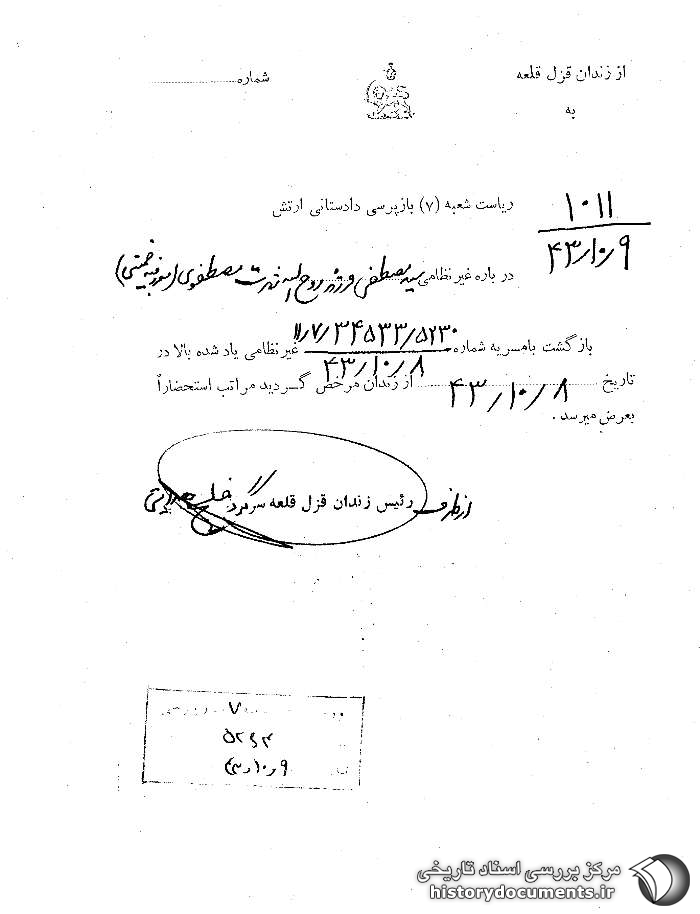 از زندان قزل قلعه
به
شماره
۱۰۱۱
۴۳/۱۰/۹
ریاست شعبه (۷) بازپرسی دادستانی ارتش
در باره غیر نظامی سید مصطفی فرزند روح اله شهرت مصطفوی (معروف به خمینی)
بازگشت بامریه شماره ۱۱/۷/۳۴۵۳۳/۵۲۳۰ غیر نظامی یاد شده بالا در
۴۳/۱۰/۸
تاریخ ۴۳/۱۰/۸ از زندان مرخص گردید مراتب استحضاراً
بعرض میرسد.
از طرف رئیس زندان قزل قلعه سرگرد
۷ بازپرسی
۵۲۶۴
۴۳/۱۰/۹
مرکز بررسی اسناد تاریخی
historydocuments.ir